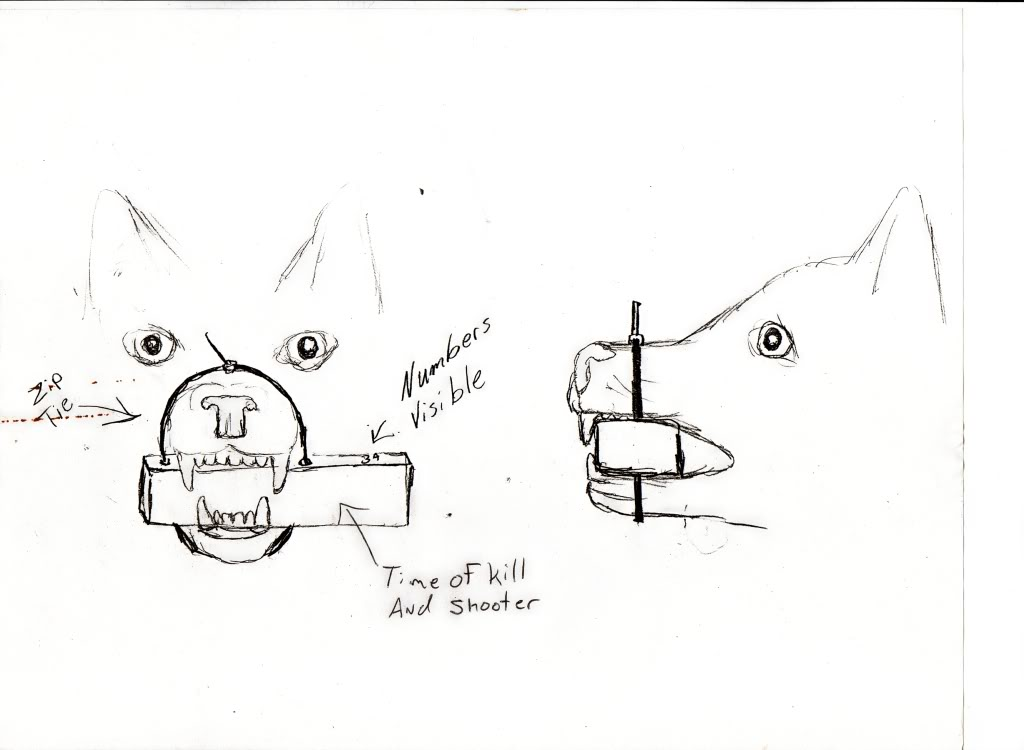 Zip
Tie
Numbers
Visible
34
Time of kill
And shooter